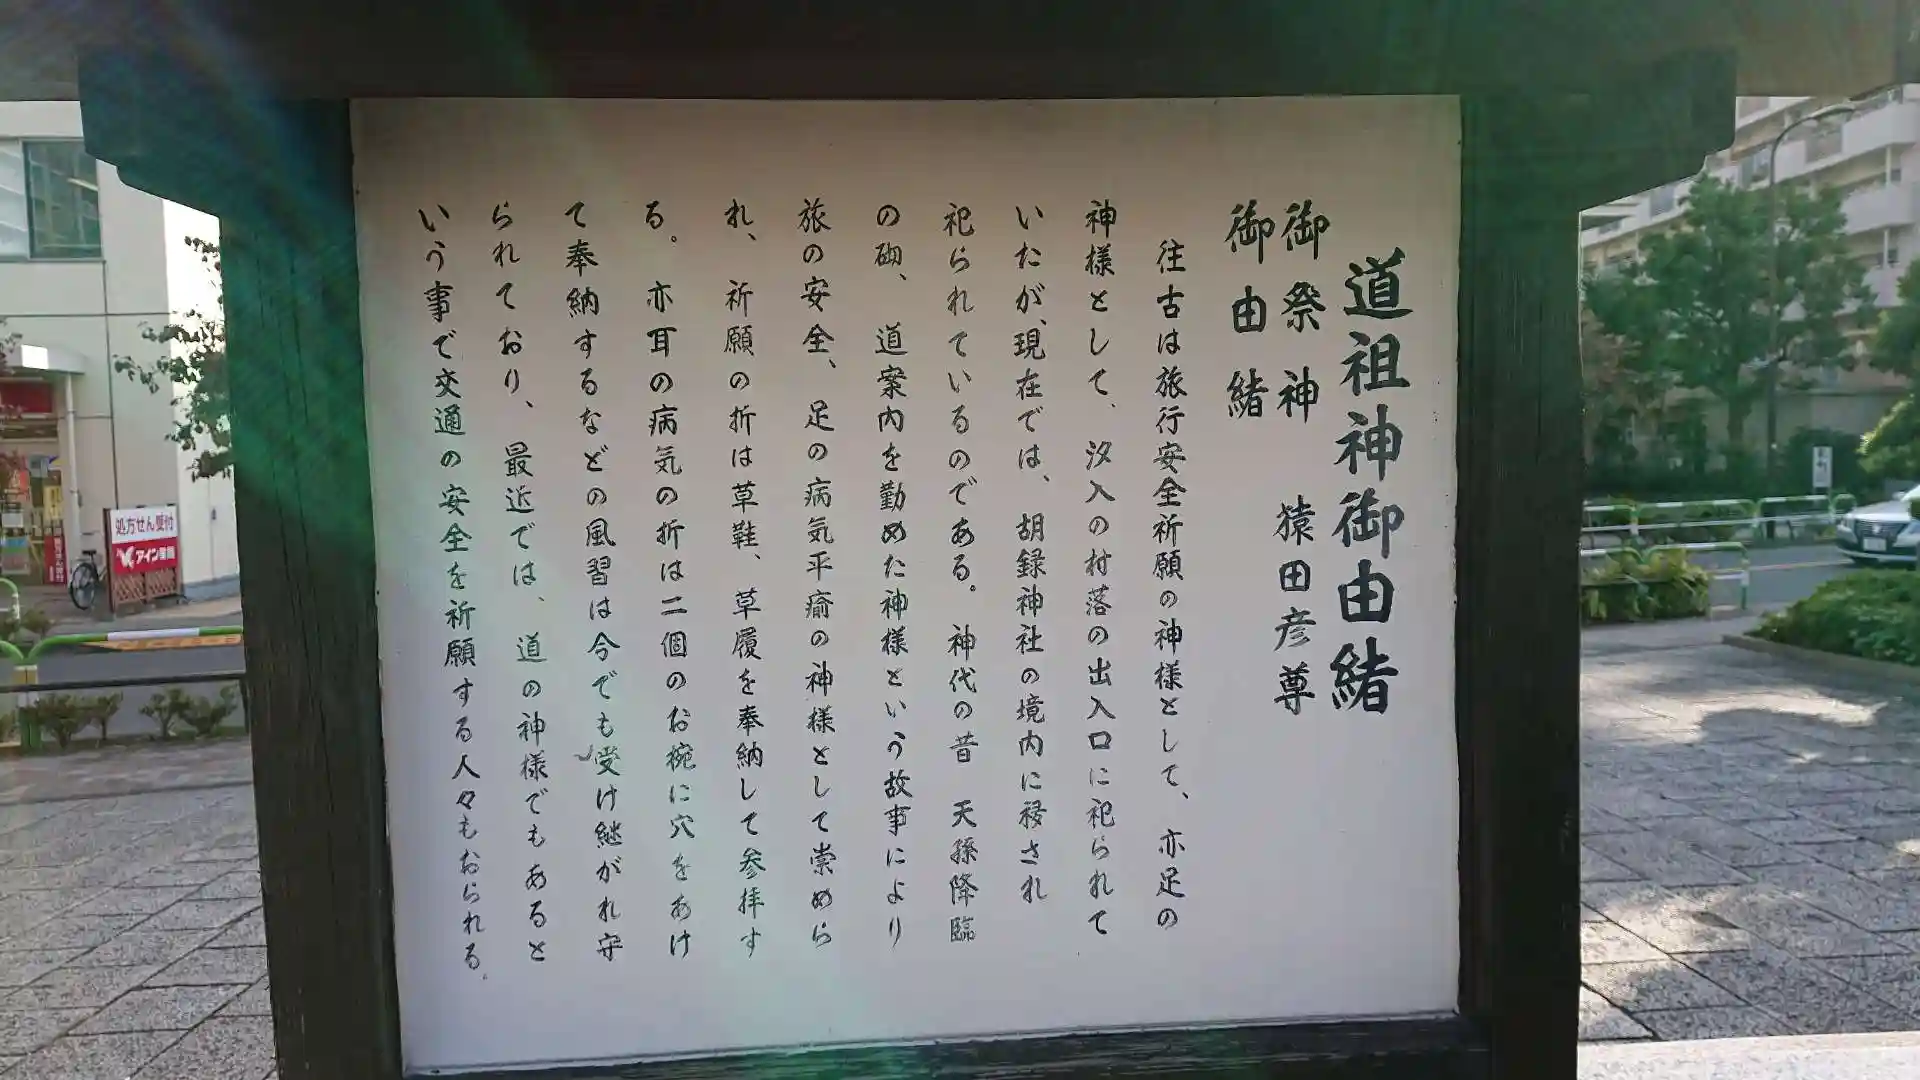 道祖神御由緒
御祭神 猿田彦尊
御由緒
往古は旅行安全祈願の神様として、亦足の
神様として、汐入の村落の出入口に祀られて
いたが、現在では、胡録神社の境内に移され
祀られているのである。神代の昔 天孫降臨
の砌、道案内を勤めた神様という故事により
旅の安全、足の病気平癒の神様として崇めら
れ、祈願の折は草鞋、草履を奉納して参拝す
る。亦耳の病気の折は二個のお椀に穴をあけ
て奉納するなどの風習は今でも受け継がれ守
られており、最近では、道の神様でもあると
いう事で交通の安全を祈願する人々もおられる。
処方せん受付
アイン薬局